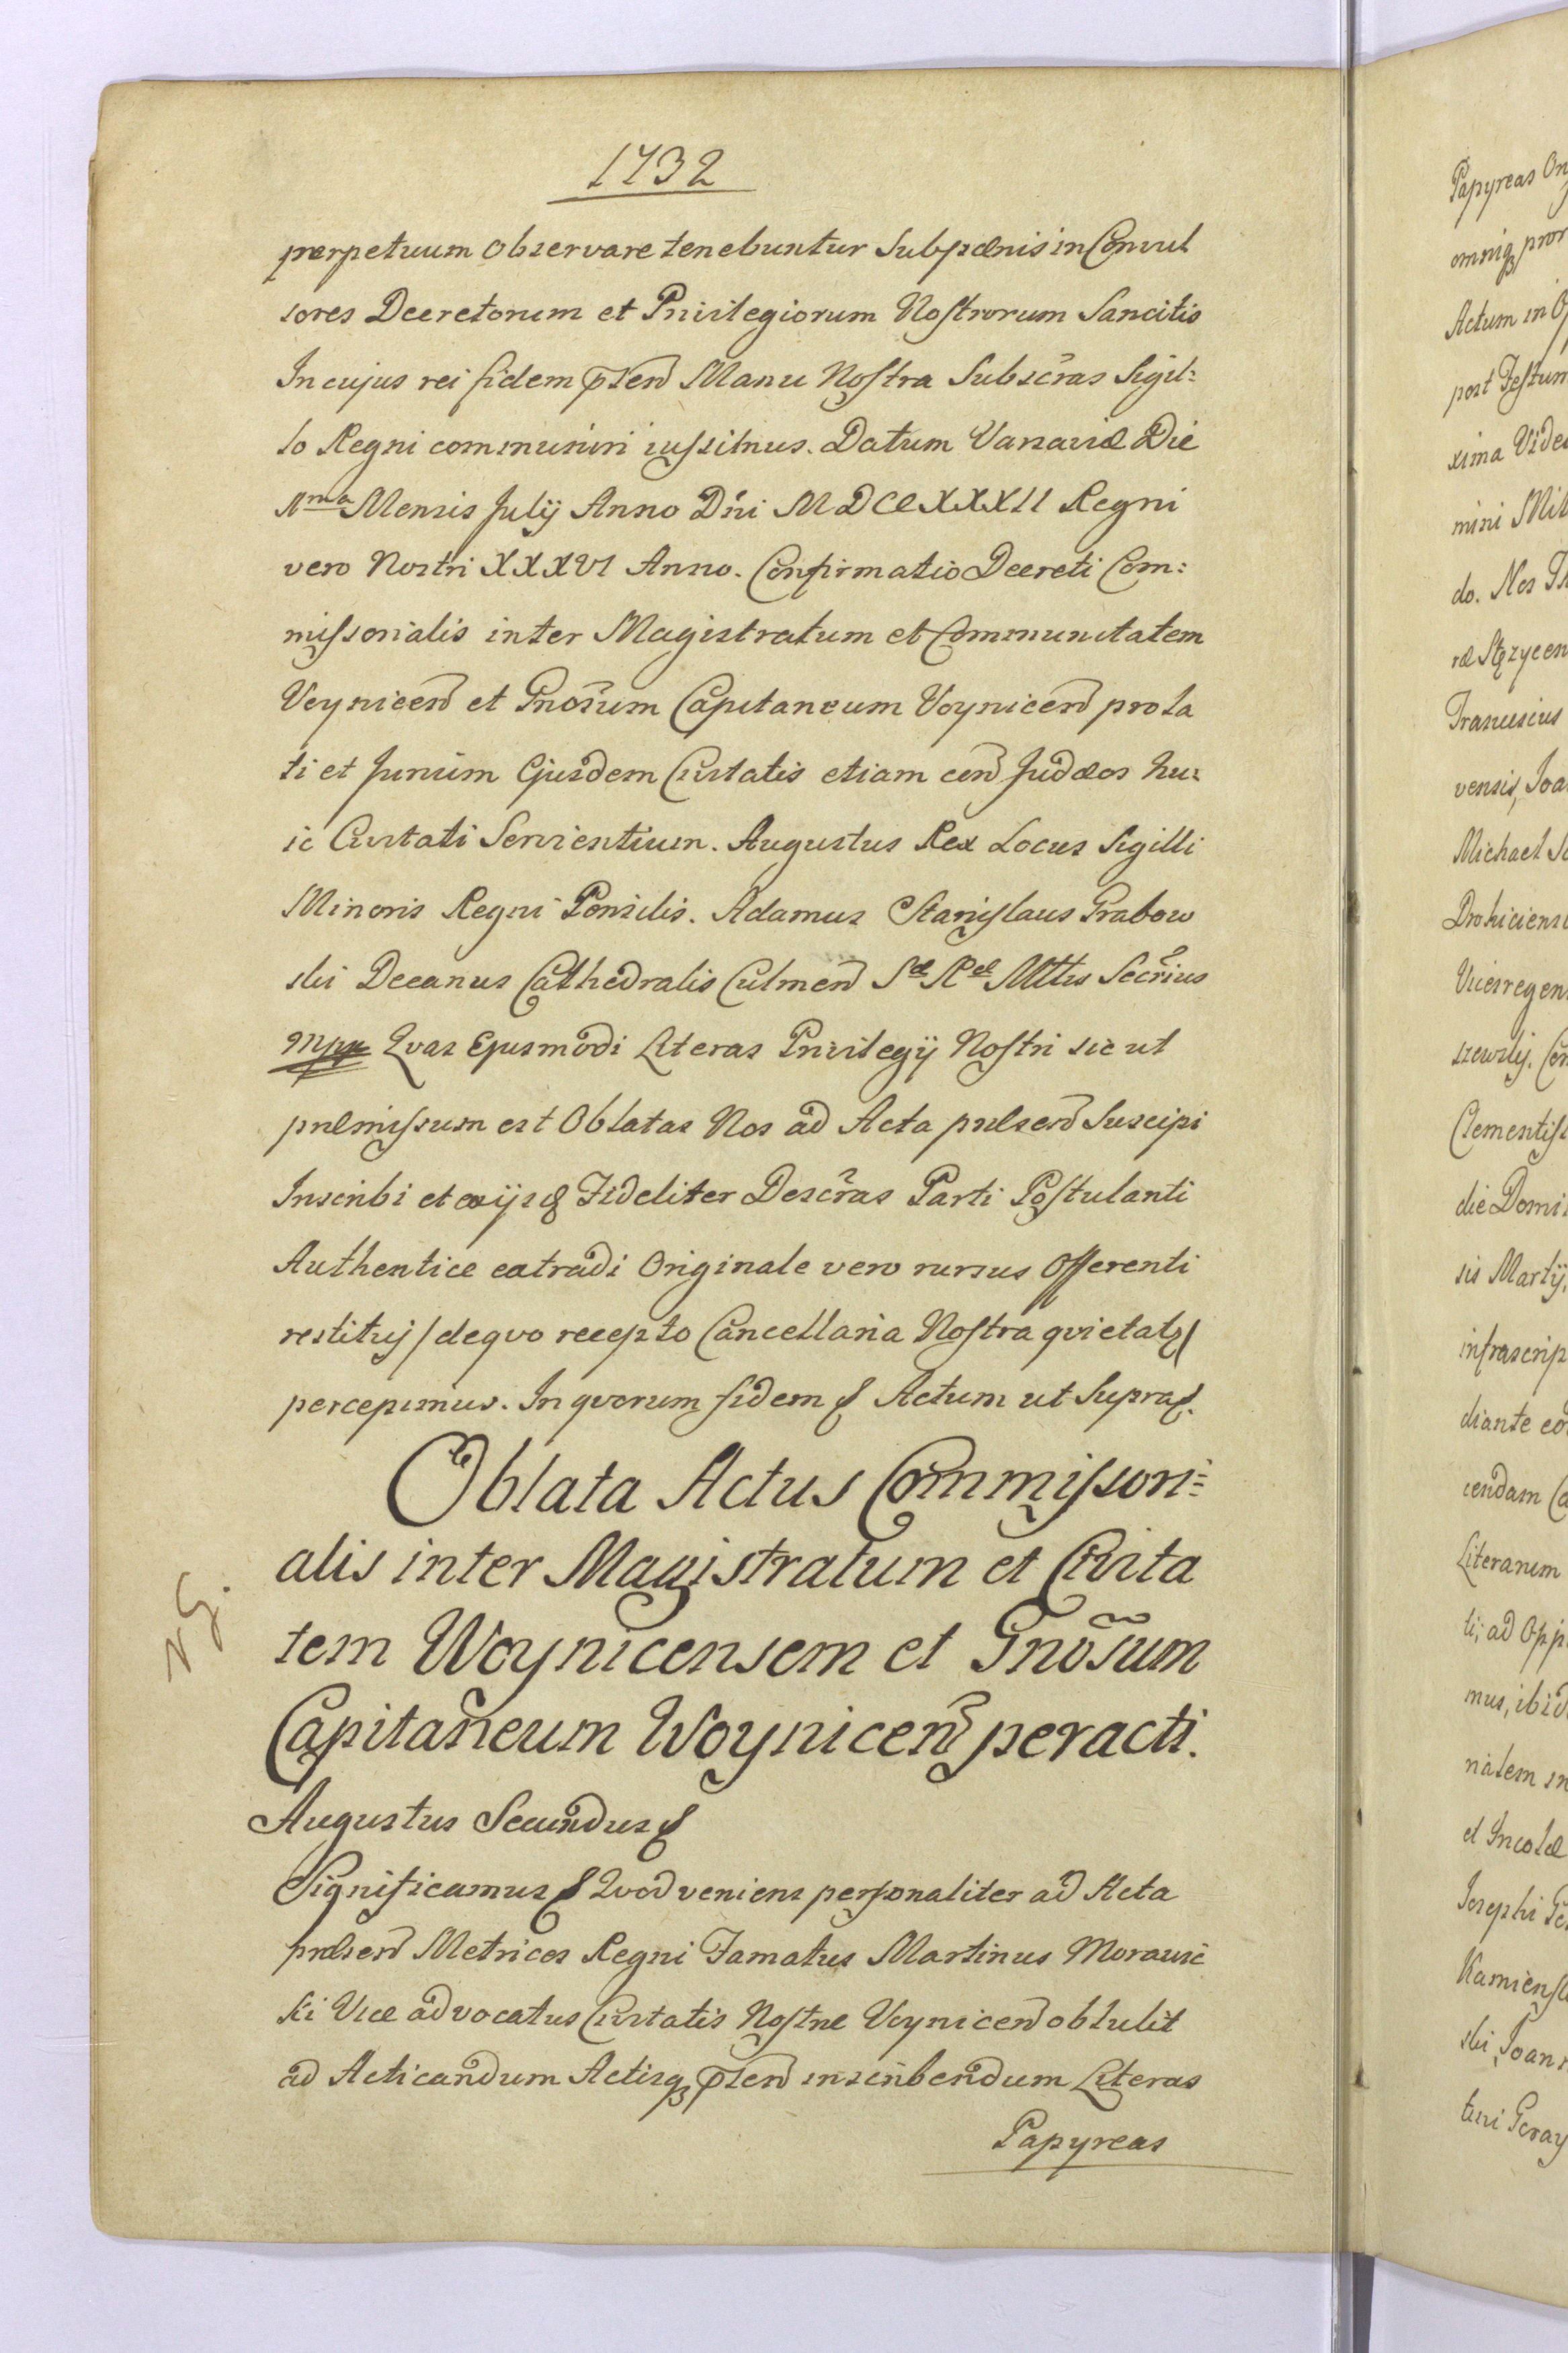 1732
perpetuum observare tenebuntur Subpænis in Convul
sores Decretorum et Privilegiorum Nostrorum Sancitis
In cujus rei fidem pñten Manu Nostra Subscras Sigil:
lo Regni communiri iussimus. Datum Varsaviæ Die
Mensis Julij Anno Dñi MDCCXXXII Regni
vero Nostri XXXVI Anno. Confirmatio Decreti Com:
missorialis inter Magistratum et Communitatem
Voynicen et Gnosum Capitaneum Voynicen prola
ti et Jurium Ejusdem Civitatis etiam cen Judæos hu:
ic Civitati Servientium. Augustus Rex Locus Sigilli
Minoris Regni Pensilis. Adamus Stanislaus Grabow
ski Decanus Cathedralis Culmen Sæ Ræ Mttis Secrius
mpp Qvas Ejusmodi Literas Privilegij Nostri sic ut
præmissum est Oblatas Nos ad Acta præsen Suscipi
Inscribi et ex ijsq Fideliter Descras Parti Postulanti
Authentice extradi Originale vero rursus Offerenti
restituj / de qvo recepto Cancellaria Nostra qvietatq /
percepimus. In qvorum fidem & Actum ut Supra &.
Oblata Actus Commissori:
alis inter Magistratum et Civita
tem Woynicensem et Gnosum
Capitaneum Woynicen peracti.
Augustus Secundus &
Significamus & Qvod veniens personaliter ad Acta
præsen Metrices Regni Famatus Martinus Morawic
ki Vice advocatus Civitatis Nostræ Voynicen obtulit
ad Acticandum Actisq pñten inscribendum Literas
Papyreas
NG.
Papyreas
omniq
Actum in
post Festum
xima
mini
do. Nos
Francisius
vensis, Joa
Michael
Viceregen
Clementiss
die Domi
sis Martij,
infrascrip
diante
cendam
Literarum
ti; ad
mus, ibid
et Incolæ
Josephi
Kamiensk